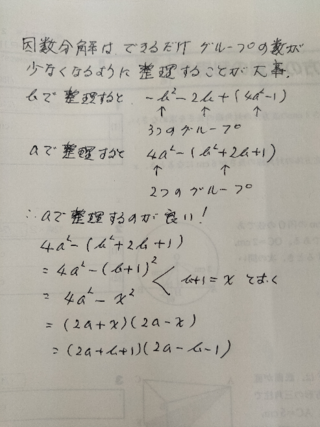 因数分解は できるだけ グループの数が
少なくなるように 整理することが大事.
bで整理すると -b²-2b+(4a²-1)
↑ ↑ ↑
3つのグループ
aで整理すると 4a²-(b²+2b+1)
↑ ↑
2つのグループ
∴aで整理するのが良い!
4a²-(b²+2b+1)
=4a²-(b+1)²
b+1=xとおく
=4a²-x²
=(2a+x)(2a-x)
=(2a+b+1)(2a-b-1)